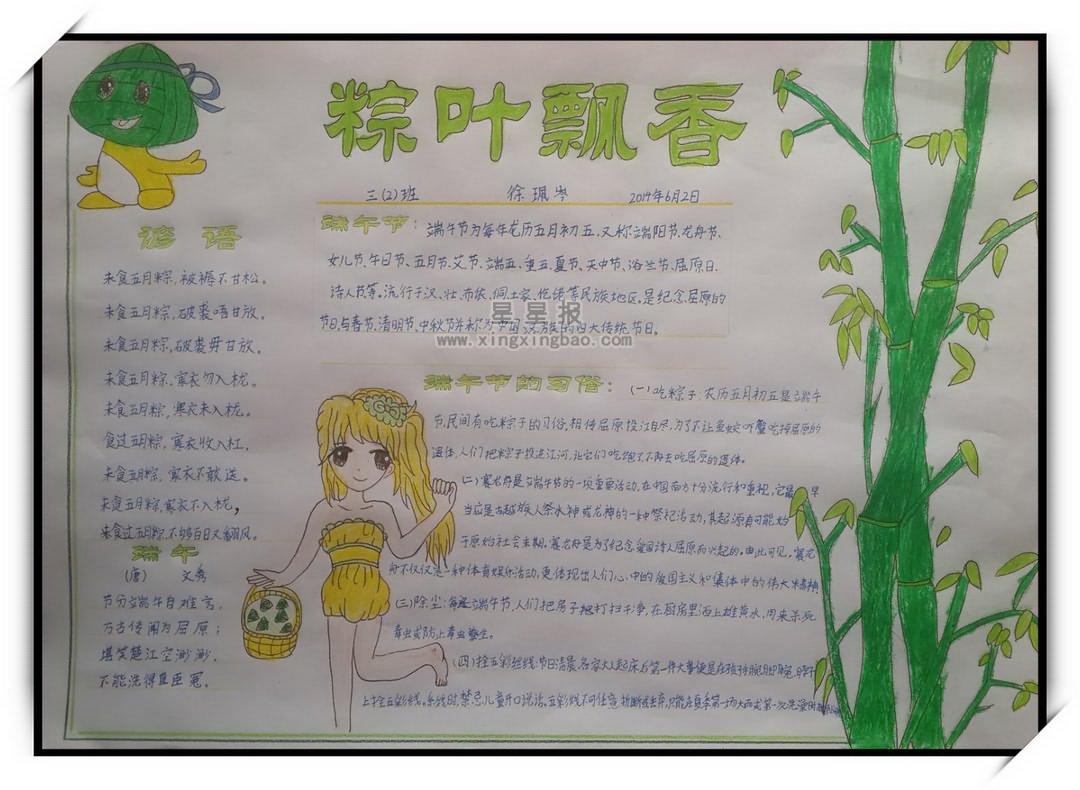 粽叶飘香
三(2)班 徐珮岑 2014年6月2日
谚语
未食五月粽,被褥不甘松。
未食五月粽,破裘唔甘放。
未食五月粽,破裘毋甘放。
未食五月粽,寒衣勿入栊。
未食五月粽,寒衣未入栊。
食过五月粽,寒衣收入杠。
未食五月粽,寒衣不敢送。
未食五月粽,寒衣不入栊,
未食过五月粽,不够百日又翻风。
端午
(唐) 文秀
节分端午自谁言,
万古传闻为屈原;
堪笑楚江空渺渺,
不能洗得直臣冤。
端午节:端午节为每年龙历五月初五,又称端阳节、龙舟节、
女儿节、午日节、五月节、艾节、端五、重五、夏节、天中节、浴兰节、屈原日、
诗人节等。流行于汉、壮、布依、侗、土家、仡佬等民族地区。是纪念屈原的
节日,与春节、清明节、中秋节并称为中国汉族的四大传统节日。
星星报
www.xingxingbao.com
端午节的习俗:(一)吃粽子:农历五月初五是端午
节,民间有吃粽子的习俗,相传屈原投江自尽,为了不让鱼蛟虾蟹吃掉屈原的
遗体,人们把粽子投进江河,让它们吃饱了不再去吃屈原的遗体。
(二)赛龙舟是端午节的一项重要活动,在中国南方十分流行和重视,它最早
当应是古越族人祭水神或龙神的一种祭祀活动,其起源有可能始
于原始社会末期。赛龙舟是为了纪念爱国诗人屈原而兴起的。由此可见,赛龙
舟不仅仅是一种体育娱乐活动,更体现出人们心中的爱国主义和集体中的伟大精神
(三)除尘:每逢端午节,人们把房子打扫干净,在厨房里洒上雄黄水,用来杀死
毒虫或防止毒虫孳生。
(四)拴五彩丝线:节日清晨,各家大人起床后第一件大事便是在孩持腕脚腕、脖子
上拴五彩线。系线时,禁忌儿童开口说话。五彩线不可任意折断或丢弃,只能在夏季第一场大雨或第一次洗澡时